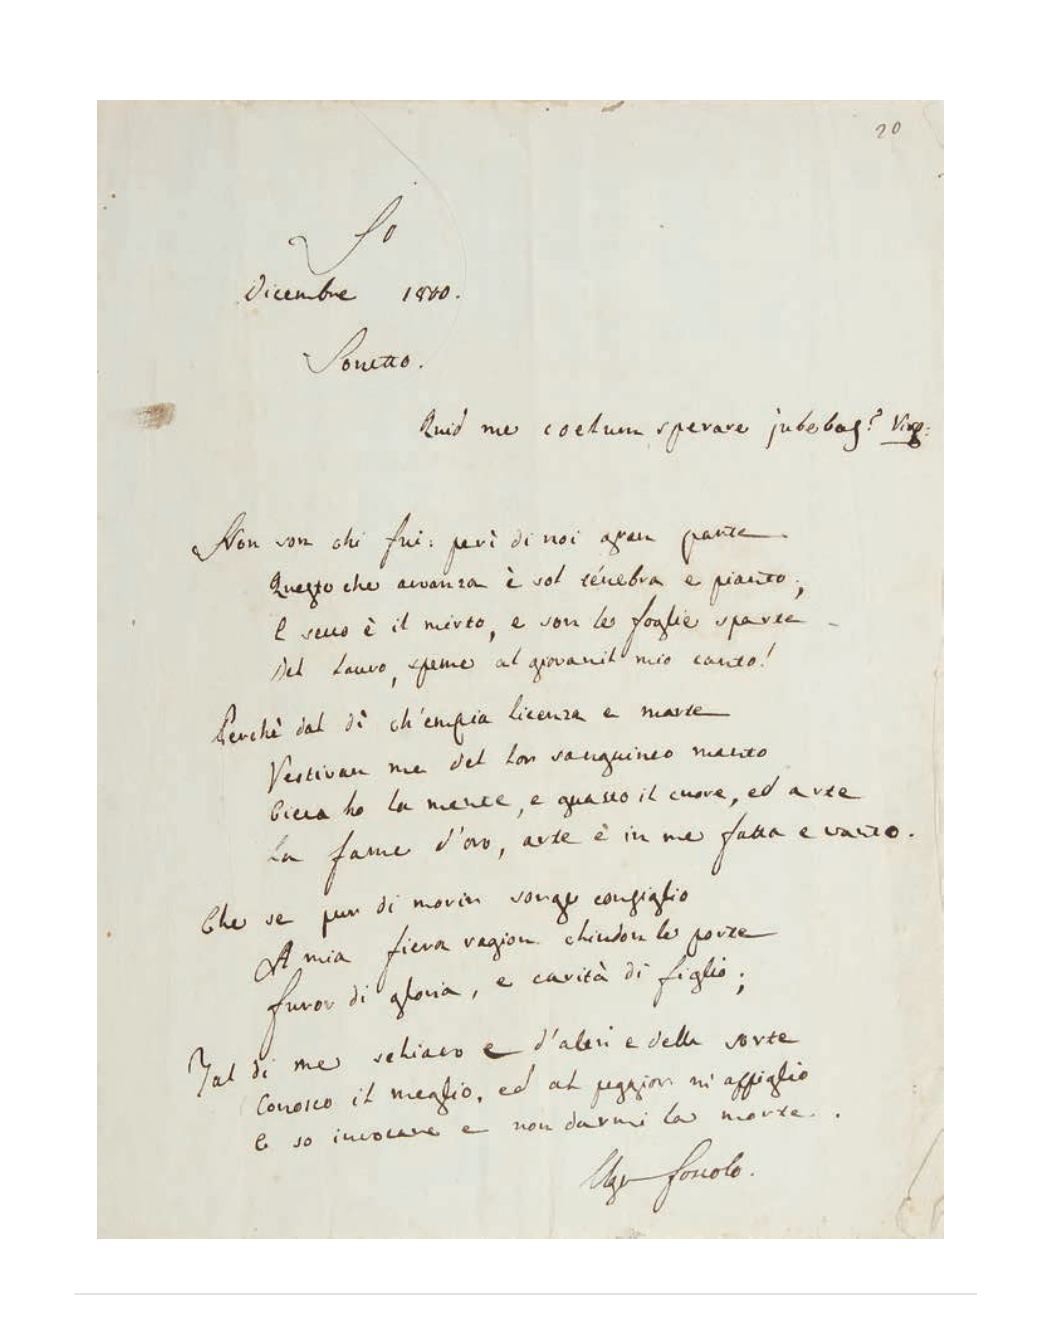 20
Io
Dicembre 1800.
Sonetto.
Quid me coelum sperare jubebas? Virg:
Non son chi fui: perì di noi gran parte
Questo che avvanza è sol ténebra e pianto;
E secco è il mirto, e son le foglie sparte
Del Lauro, speme al giovanil mio canto!
Perchè dal dì ch'empia licenza e marte
Vestivan me del lor sanguineo manto
Cieca ho la mente, e guasto il cuore, ed arte
La fame d'oro, arte è in me fatta e vanto.
Che se pur di morir sorge consiglio
A mia fiera ragion chiudon le porte
furor di gloria, e carità di figlio;
Tal di me schiavo e d'altri e della sorte
Conosco il meglio, ed al peggior m'appiglio
E so invocare e non darmi la morte.
Ugo Foscolo.